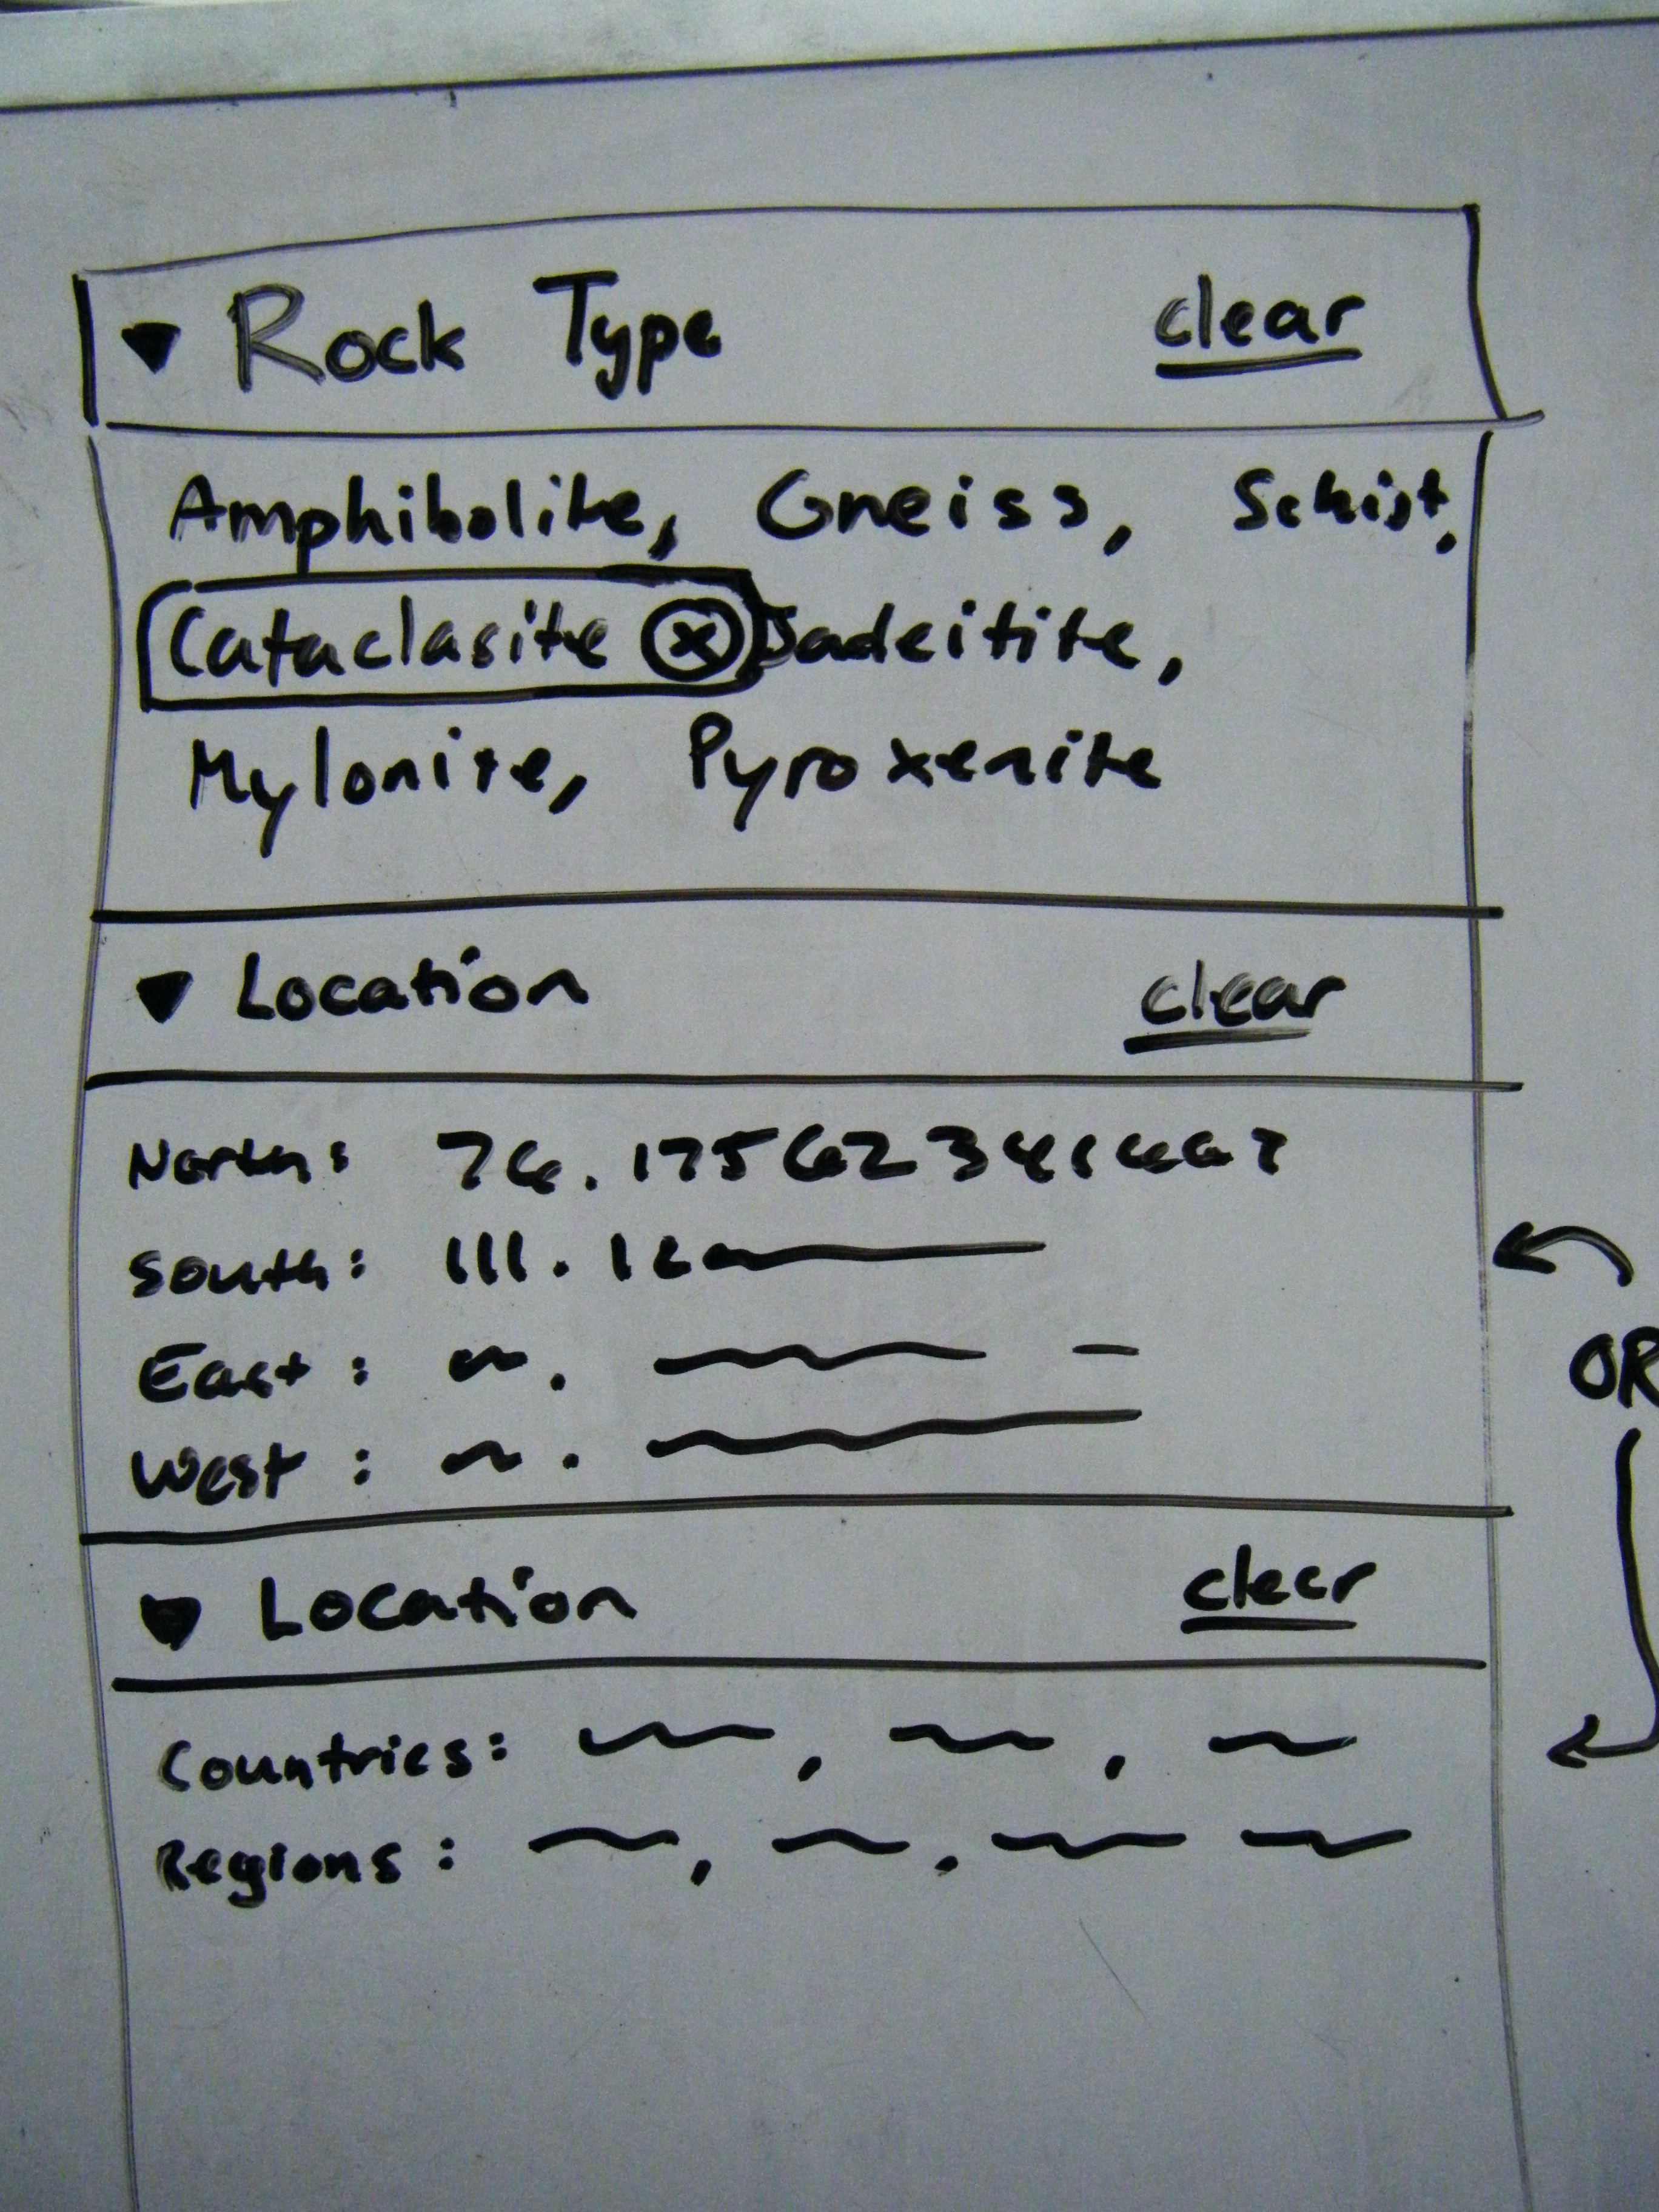 ▼ Rock Type clear
Amphibolite, Gneiss, Schist,
Cataclasite ⓧ Jadeitite,
Mylonite, Pyroxenite
▼ Location clear
North:
South: 111.12
East:
West:
OR
▼ Location clear
Countries:
Regions: